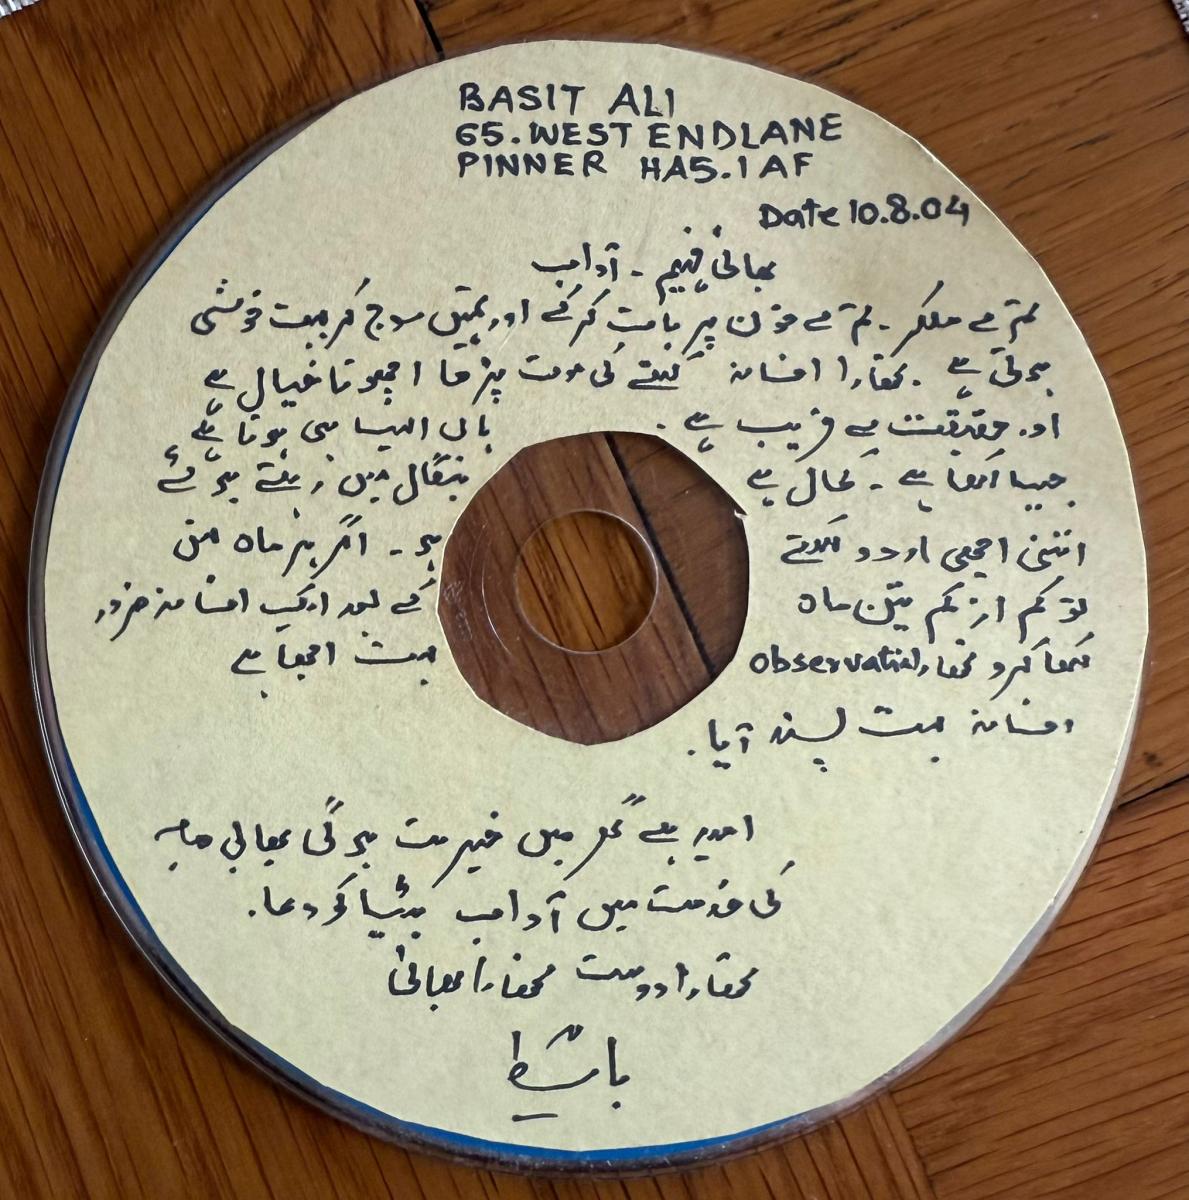 BASIT ALI
65.WEST ENDLANE
PINNER HA5.1AF
Date 10.8.04
بھائی فہیم - آداب
تم سے ملکر - تم سے فون پر بات کرکے اور تمہیں سوچ کر بہت خوشی
ہوتی ہے . تمھارا افسانہ کتے کی موت پڑھا اچھوتا خیال ہے
اور حقیقت سے قریب ہے . ہاں ایسا ہی ہوتا ہے
جیسا لکھا ہے - کمال ہے بنگال میں رہتے ہوئے
اتنی اچھی اردو لکھتے ہو - اگر ہر ماہ نہیں
تو کم از کم تین ماہ کے بعد ایک افسانہ ضرور
لکھا کرو تمھارا observation بہت اچھا ہے
افسانہ بہت پسند آیا .
امید ہے گھر میں خیریت ہوگی بھابی صاحبہ
کی خدمت میں آداب بٹیا کو دعا .
تمھارا دوست تمھارا بھائی
باسط